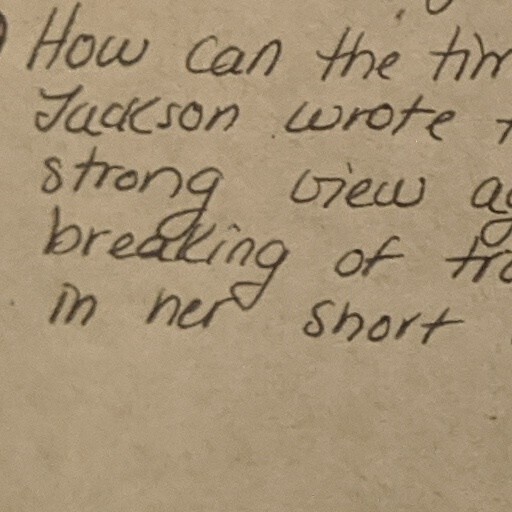 How can the tim
Jackson wrote t
strong view ag
breaking of tra
in her short